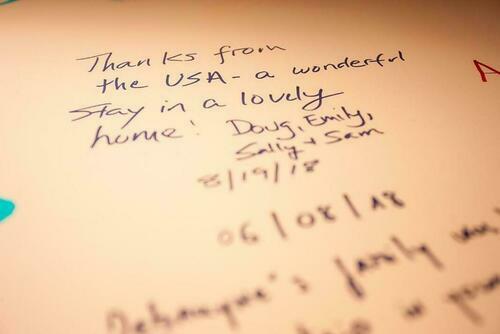 Thanks from
the USA - a wonderful
stay in a lovely
home! Doug, Emily,
Sally + Sam
8/19/18
06/08/18
's family
is